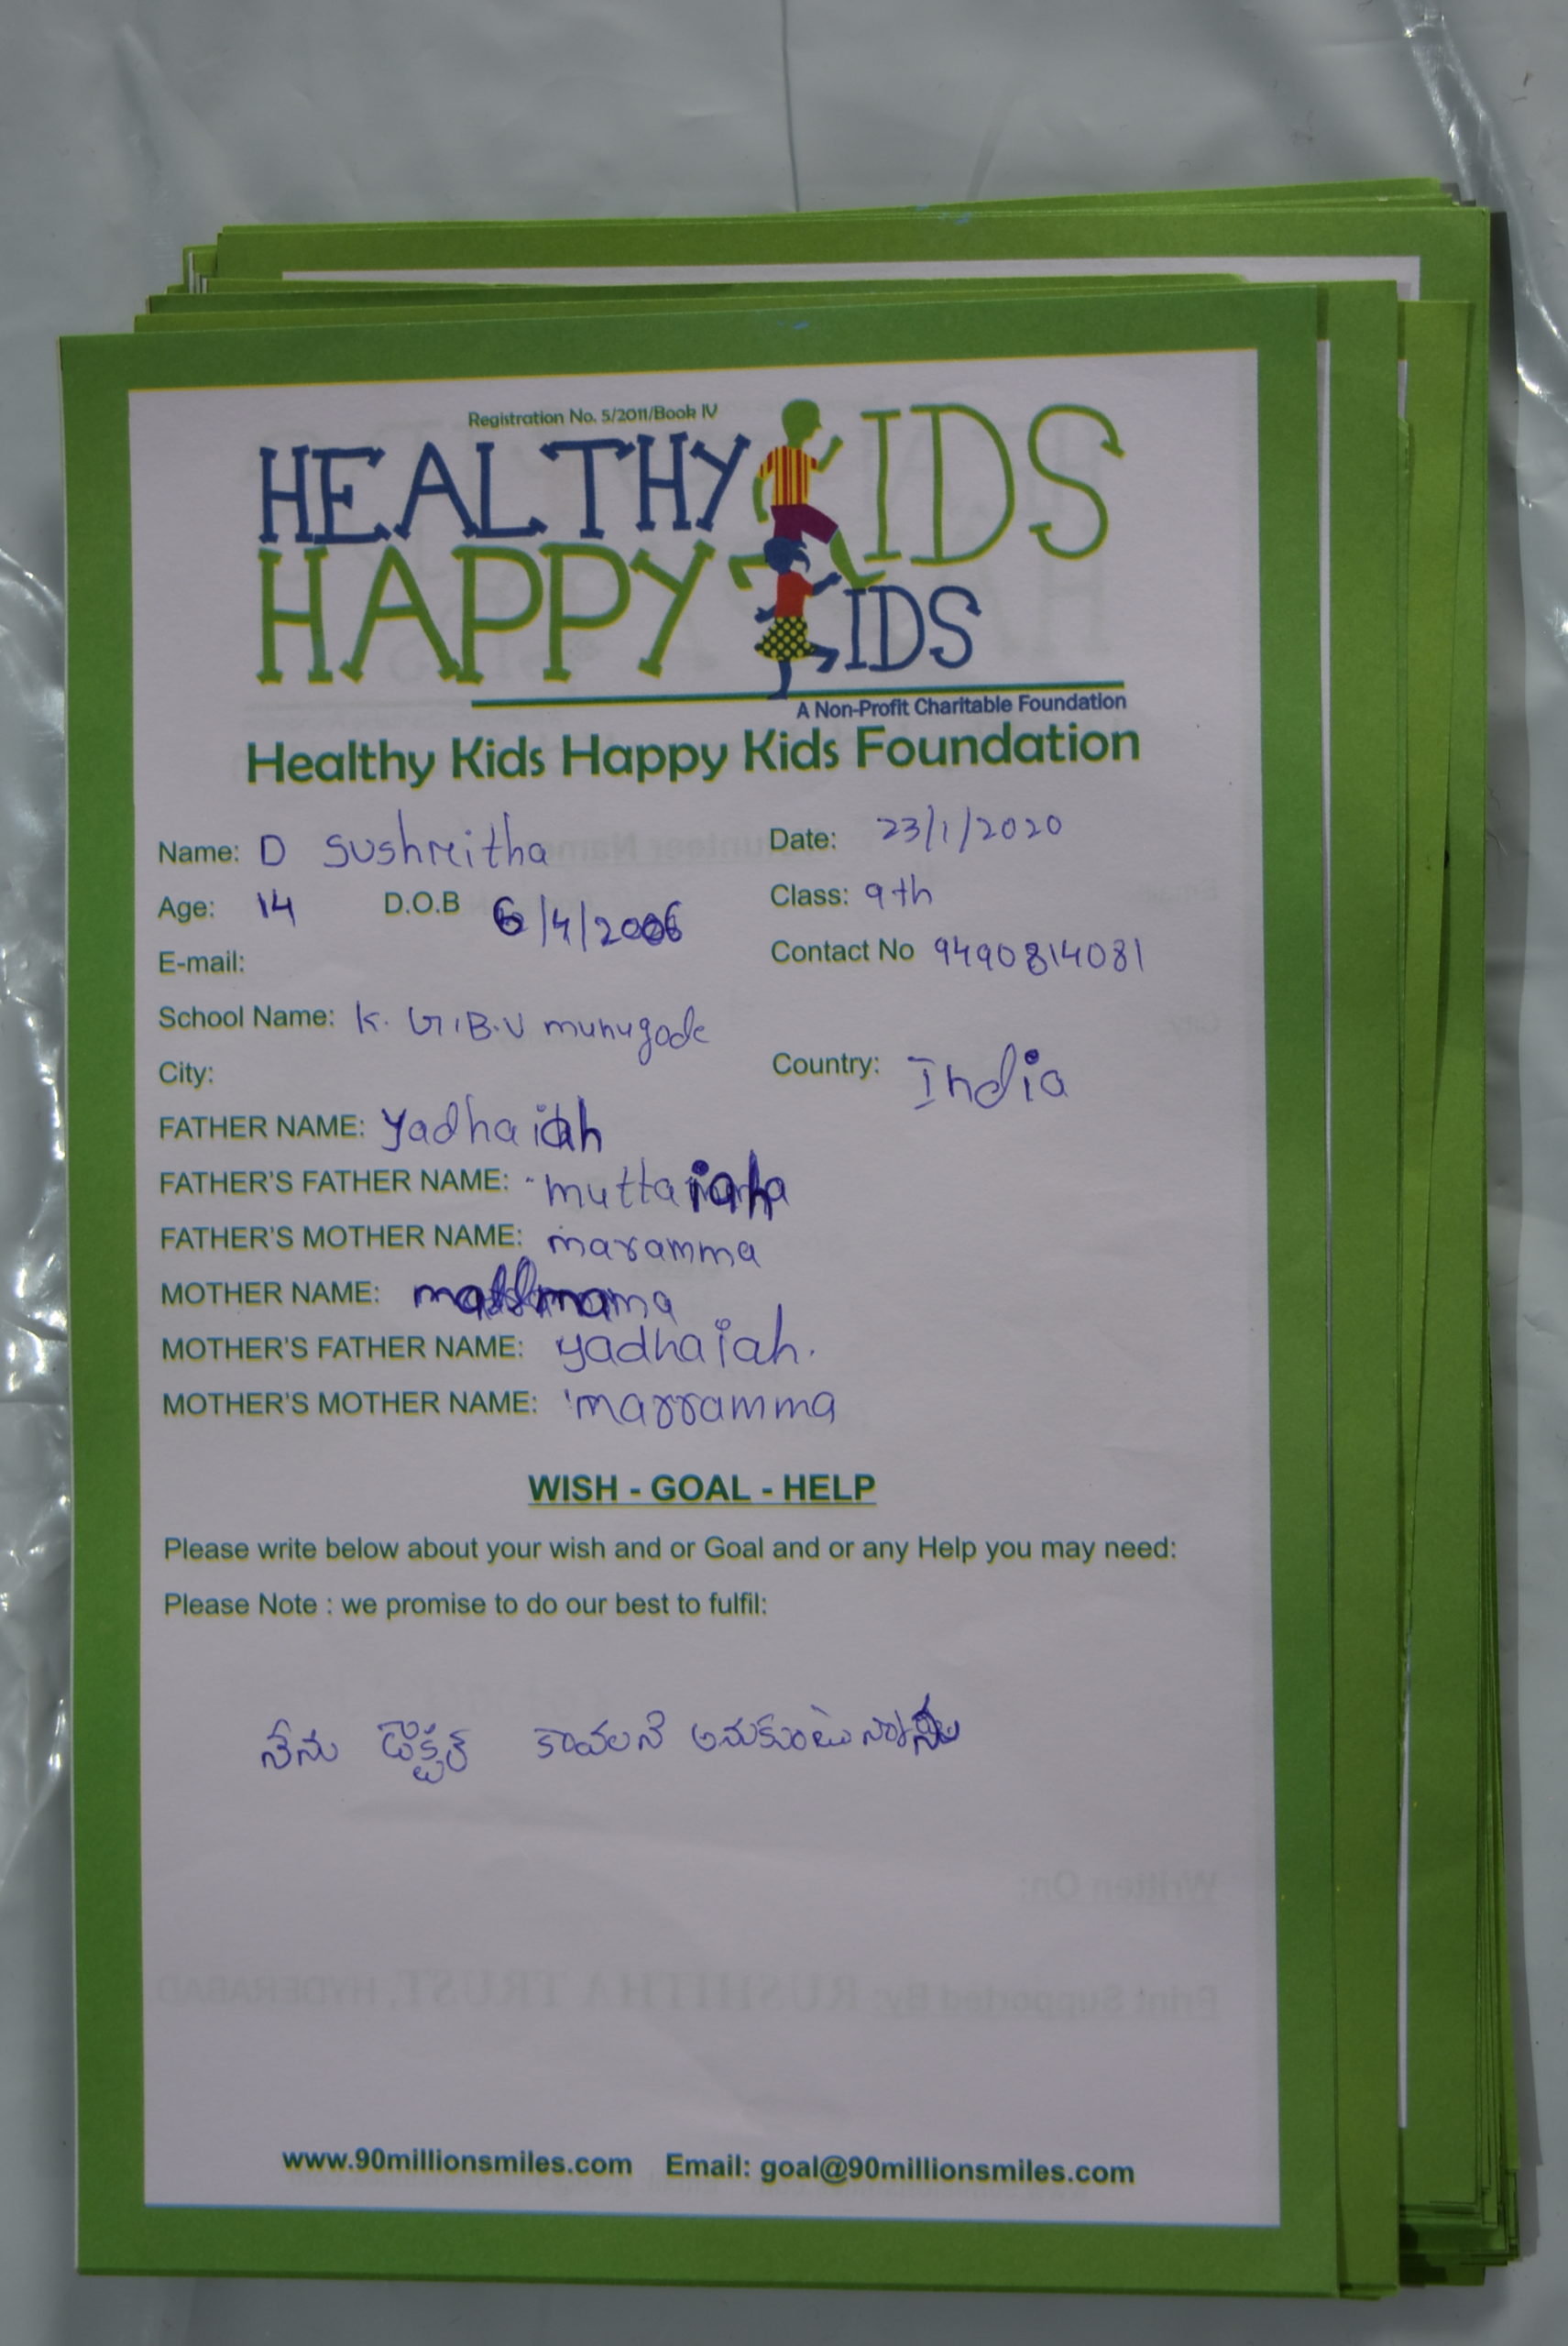 Registration No. 5/2011/Book IV
HEALTHY KIDS
HAPPY KIDS
A Non-Profit Charitable Foundation
Healthy Kids Happy Kids Foundation
Name: D Sushritha Date: 23/1/2020
Age: 14 D.O.B 6/4/2006 Class: 9th
E-mail: Contact No 9490814081
School Name: K. G.B.V munugode
City: Country: India
FATHER NAME: Yadhaiah
FATHER'S FATHER NAME: muttaiah
FATHER'S MOTHER NAME: maramma
MOTHER NAME:
MOTHER'S FATHER NAME: yadhaiah.
MOTHER'S MOTHER NAME: marramma
WISH - GOAL - HELP
Please write below about your wish and or Goal and or any Help you may need:
Please Note : we promise to do our best to fulfil:
నేను డాక్టర్ కావలనె అనుకుంటున్నాను
Written On:
Print Supported By: RUSHITHA TRUST, HYDERABAD.
www.90millionsmiles.com Email: goal@90millionsmiles.com